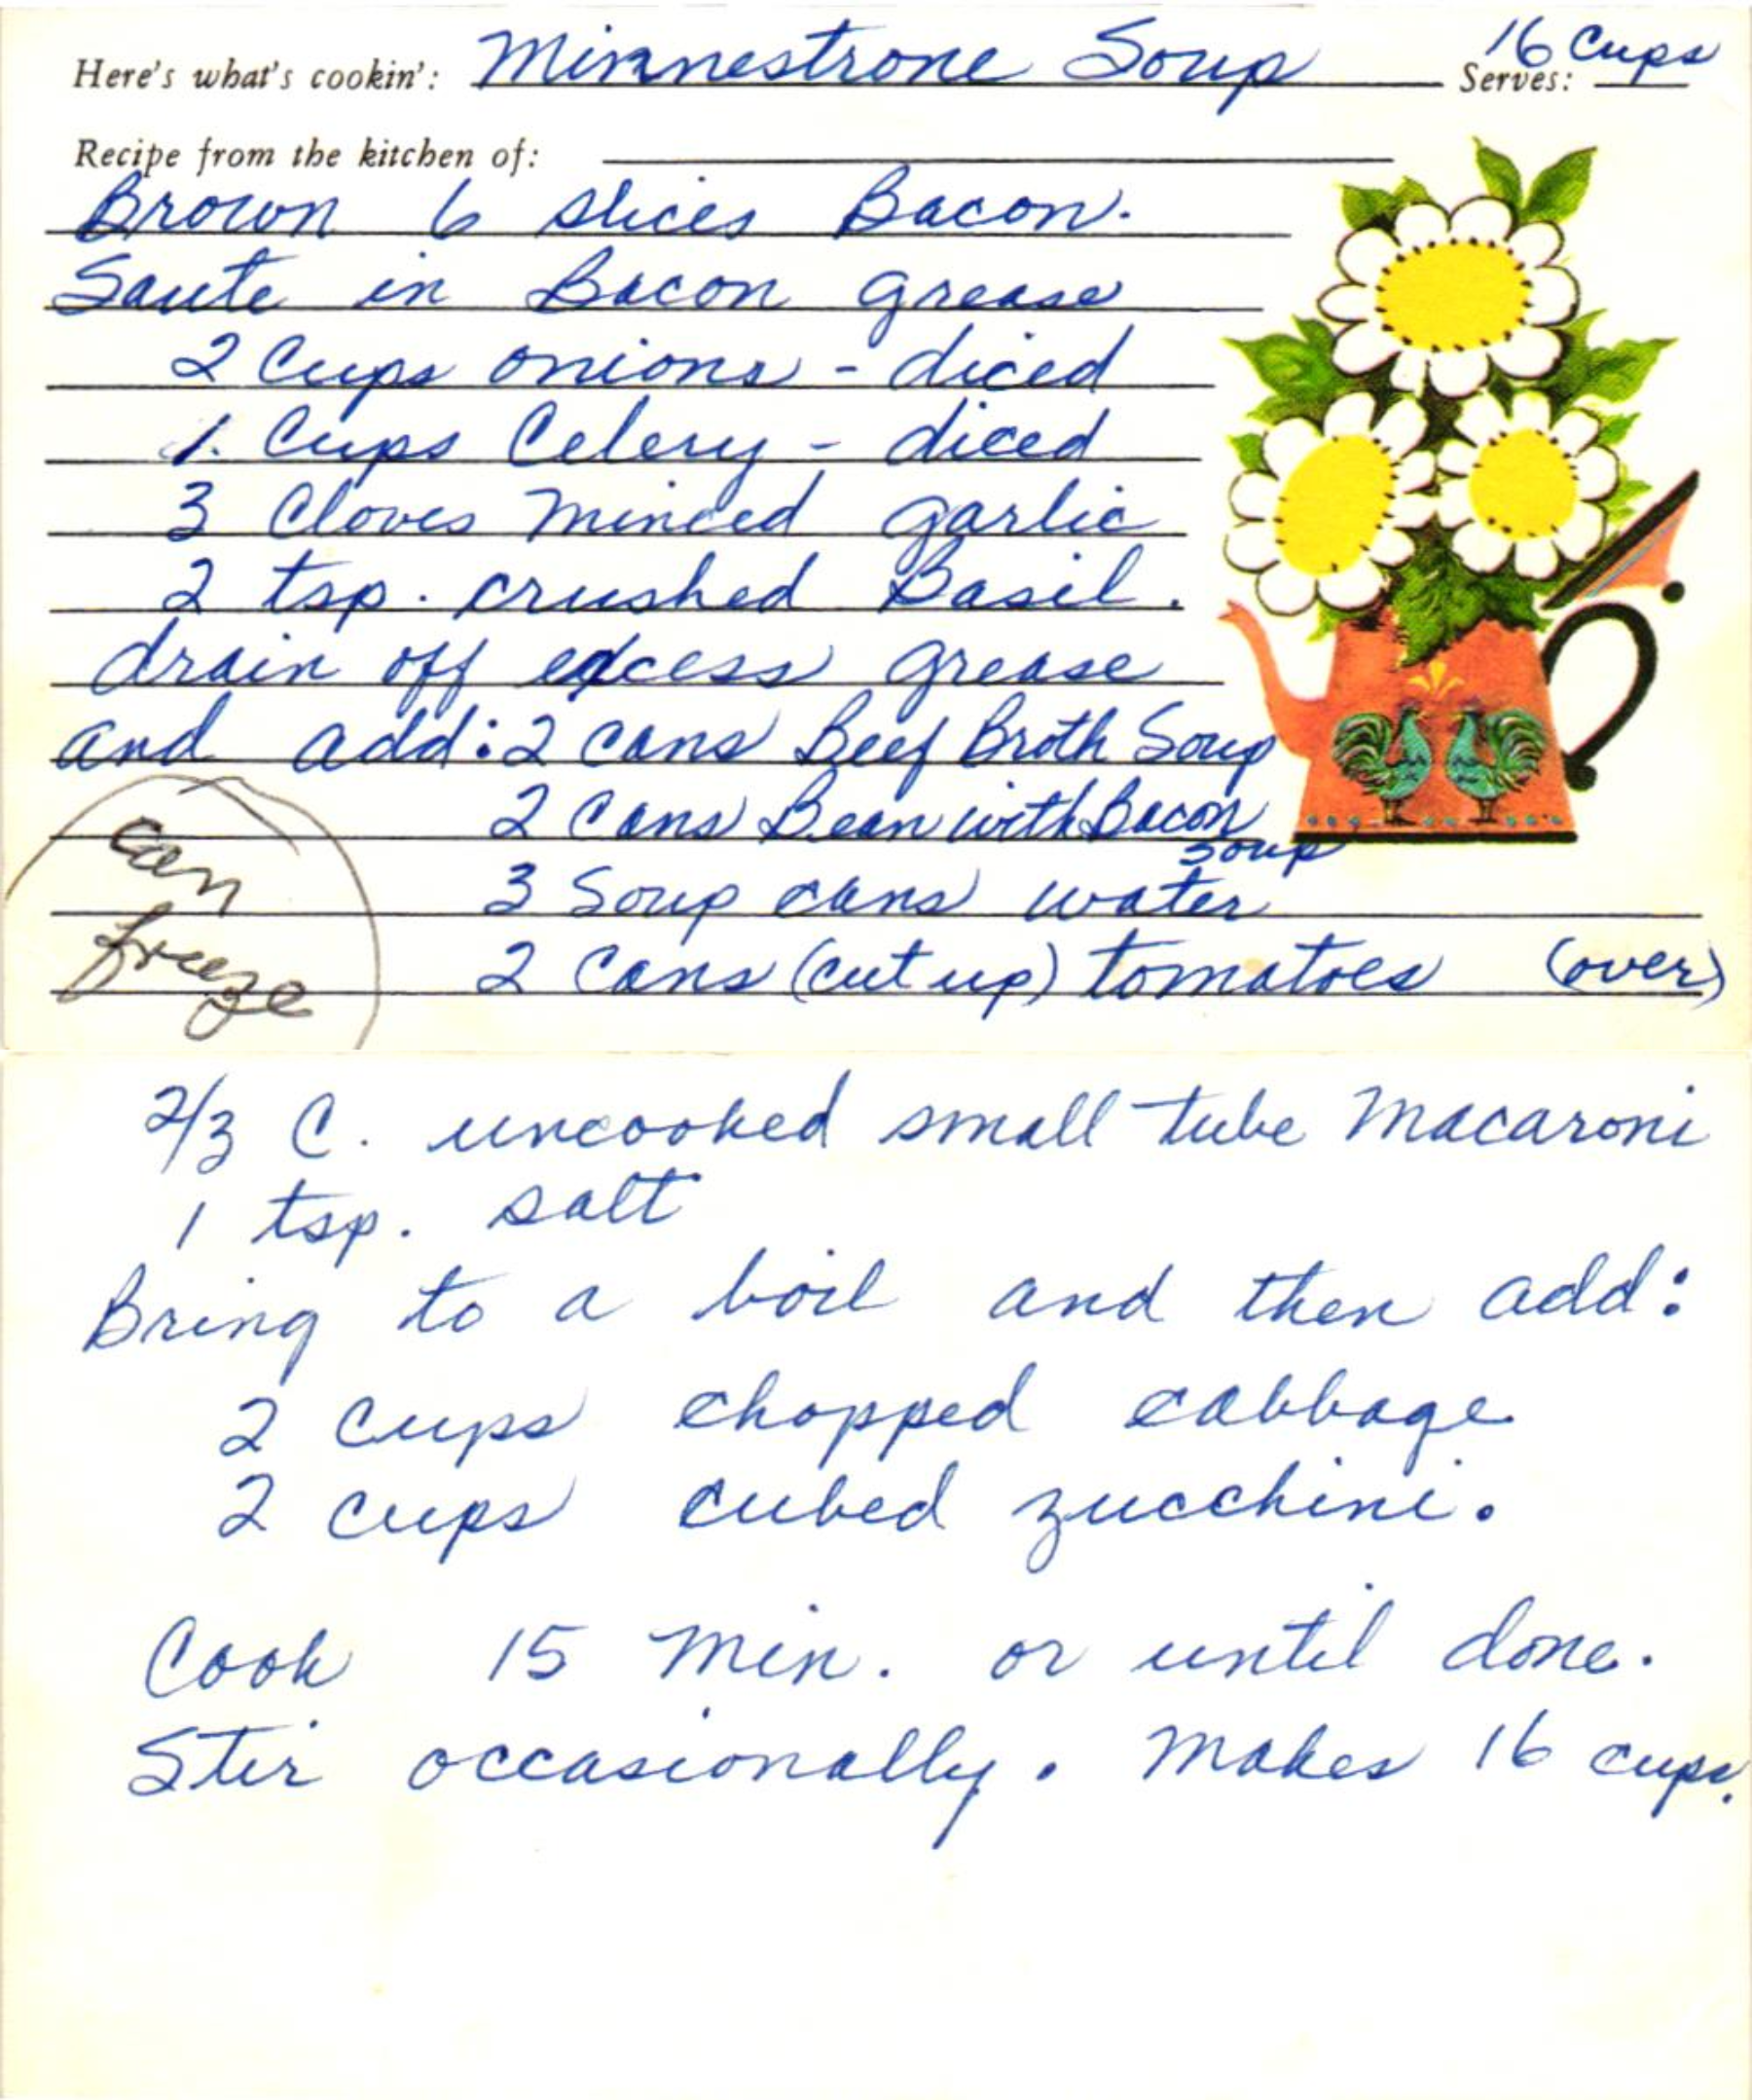 Here's what's cookin': Minnestrone Soup Serves: 16 Cups
Recipe from the kitchen of:
Brown 6 slices Bacon.
Saute in Bacon grease
2 Cups onions - diced
1. Cups Celery - diced
3 Cloves minced garlic
2 tsp. crushed Basil.
drain off excess grease
and add: 2 cans Beef Broth Soup
2 Cans Bean with Bacon
soup
3 Soup cans water
2 Cans (cut up) tomatoes (over)
can
freeze
2/3 C. uncooked small tube Macaroni
1 tsp. salt
Bring to a boil and then add:
2 Cups chopped cabbage
2 cups cubed zucchini.
Cook 15 min. or until done.
Stir occasionally. Makes 16 cups.